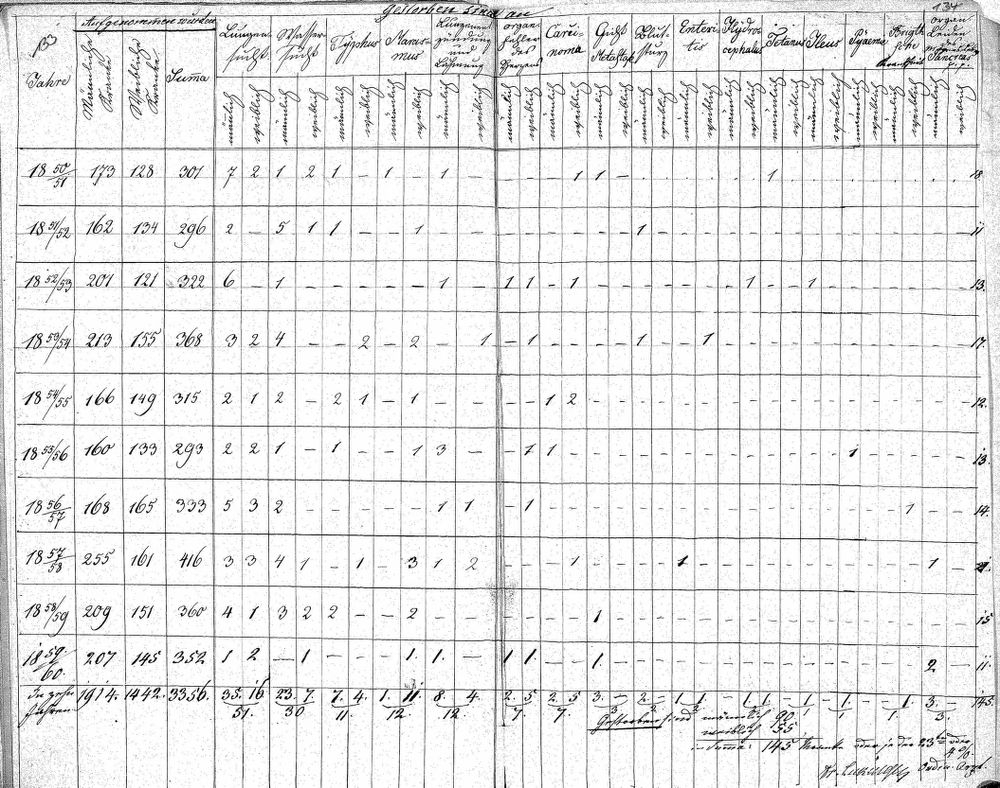 133
Gestorben sind an
134
Aufgenommen wurden
Jahre Männliche Kranke Weibliche Kranke Suma Lungensucht Wassersucht Typhus Marasmus Lungenenzündung und Lähmung organ fehler des Herzens Carcinoma Gicht Metastas Blutsturz Enteritis Hydrocephalus Tetanus Ileus Pyaeme Brigthsche Krankheit organ Leiden des Pancreas
männlich weiblich männlich weiblich männlich weiblich männlich weiblich männlich weiblich männlich weiblich männlich weiblich männlich weiblich männlich weiblich männlich weiblich männlich weiblich männlich weiblich männlich weiblich männlich weiblich männlich weiblich männlich weiblich
18 50/51 173 128 301 7 2 1 2 1 - 1 - 1 - 1 1 - 1 18
18 51/52 162 134 296 2 - 5 1 1 - - 1 - - - - - - - 1 - - 11
18 52/53 201 121 322 6 - 1 - - - - - 1 - 1 1 - 1 - - - - 1 - 1 - - 13.
18 53/54 213 155 368 3 2 4 - - 2 - 2 - 1 - 1 - - - 1 - 1 - - 17.
18 54/55 166 149 315 2 1 2 - 2 1 - 1 - - - - 1 2 - - 12.
18 55/56 160 133 293 2 2 1 - 1 - - 1 3 - - 1 1 - - 1 - - 13.
18 56/57 168 165 333 5 3 2 - - - - - 1 1 - 1 - - 1 - - 14.
18 57/58 255 161 416 3 3 4 1 - 1 - 3 1 2 - - - 1 - - 1 - - 1 - 21.
18 58/59 209 151 360 4 1 3 2 2 - - 2 - - - - 1 - - 15
18 59/60. 207 145 352 1 2 - 1 - - - 1 1. - 1 1. - - 1. - - 2 - 11.
In zehn Jahren. 1914. 1442. 3356. 35. 16 23. 7. 7. 4. 1. 11. 8. 4. 2. 5 2. 5 3. - 2. - 1. 1. - 1. 1. - 1. - 1. - - 1. 3. - 145.
51. 30 11. 12. 12. 7. 7. 3 2 1 1 1. 3.
Gestorben sind männlich 90
weiblich 55
in Suma: 145 Kranke oder je der 23te oder
4 %.
Ordin. Arzt.